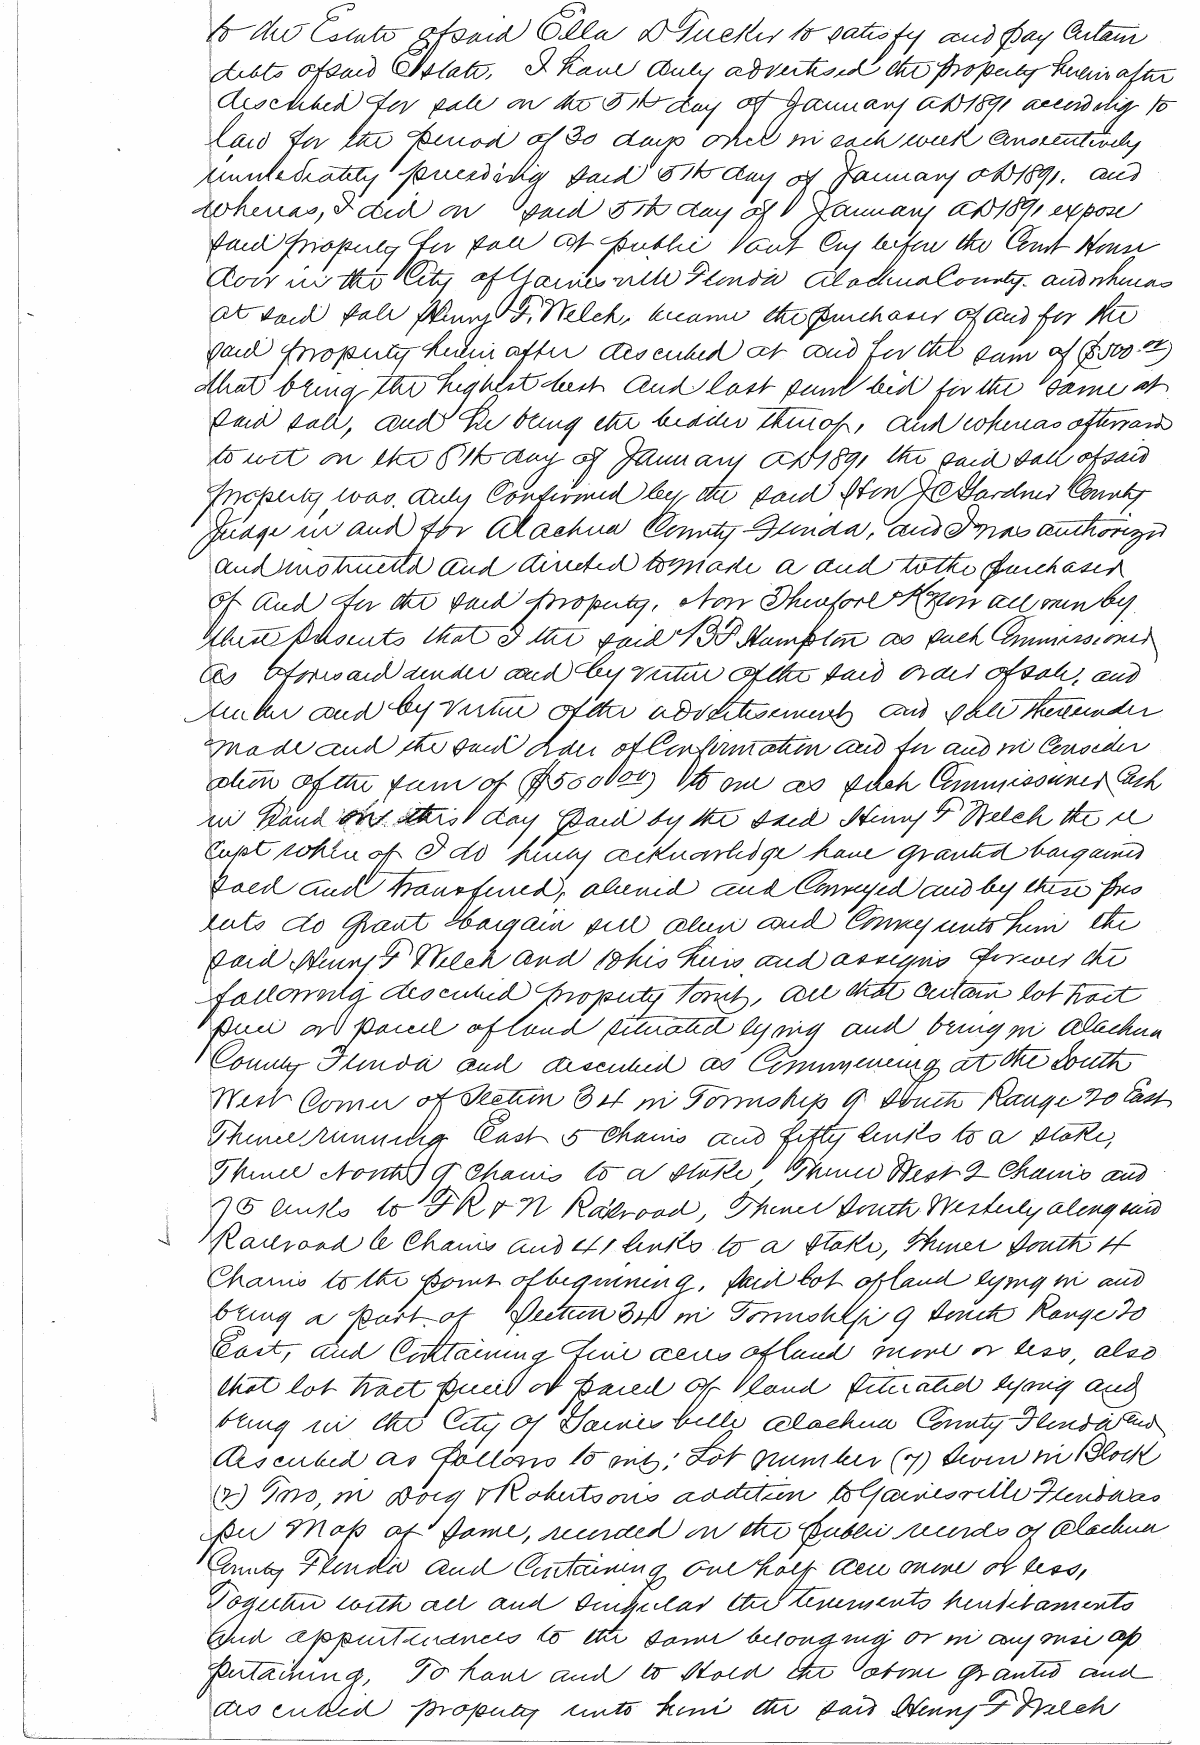 to the Estate of said Ella D Tucker to satisfy and pay Certain
debts of said Estate, I have duly advertised the property herein after
described for sale on the 5th day of January AD 1891 according to
law for the period of 30 days once in each week Consecutively
immediately preceding said 5th day of January AD 1891. and
whereas, I did on said 5th day of January AD 1891 expose
said property for sale at public out Cry before the Court House
door in the City of Gainesville Florida Alachua County. and whereas
at said sale Henny F. Welch, became the purchaser of and for the
said property herein after described at and for the sum of ($500.00)
that being the highest best and last sum bid for the same at
said sale, and he being the bidder thereof, and whereas afterward
to wit on the 8th day of January AD 1891 the said sale of said
property, was duly Confirmed by the said Hon J C Gardner County
Judge in and for Alachua County Florida, and I was authorized
and instructed and directed to made a and to the purchaser
of and for the said property, Now Therefore Know all men by
these presents that I the said B P Hampton as such Commissioner
as aforesaid under and by virtue of the said order of sale, and
under and by virtue of the advertisement and sale thereunder
made and the said order of Confirmation and for and in Consider
ation of the sum of ($500.00) to me as such Commissioner Cash
in hand on this day paid by the said Henny F Welch the re
ceipt where of I do hereby acknowledge have granted bargained
sold and transfered, aliened and Conveyed and by these pres
ents do grant bargain sell alien and Convey unto him the
said Henny F Welch and to his heirs and assigns forever the
following described property towit, all that certain lot tract
piece or parcel of land situated lying and being in Alachua
County Florida and described as Commencing at the South
West Corner of Section 34 in Township 9 South Range 20 East
Thence running East 5 Chains and fifty links to a stake,
Thence North 9 Chains to a stake, Thence West 2 Chains and
75 links to F R & N Railroad, Thence South Westerly along said
Railroad 6 Chains and 41 links to a stake, thence South 4
Chains to the point of beginning. Said lot of land lying in and
being a part of Section 34 in Township 9 South Range 20
East, and Containing five acres of land more or less, also
that lot tract piece or parcel of land situated lying and
being in the City of Gainesville Alachua County Florida and
described as follows to wit; Lot number (7) Seven in Block
(2) Two, in Doig & Robertsons addition to Gainesville Florida as
per Map of same, recorded in the public records of Alachua
County Florida and Containing one half acre more or less,
Together with all and singular the tenements hereditaments
and appurtenances to the same belonging or in any wise ap
pertaining, To have and to Hold the above granted and
described property unto him the said Henny F Welch